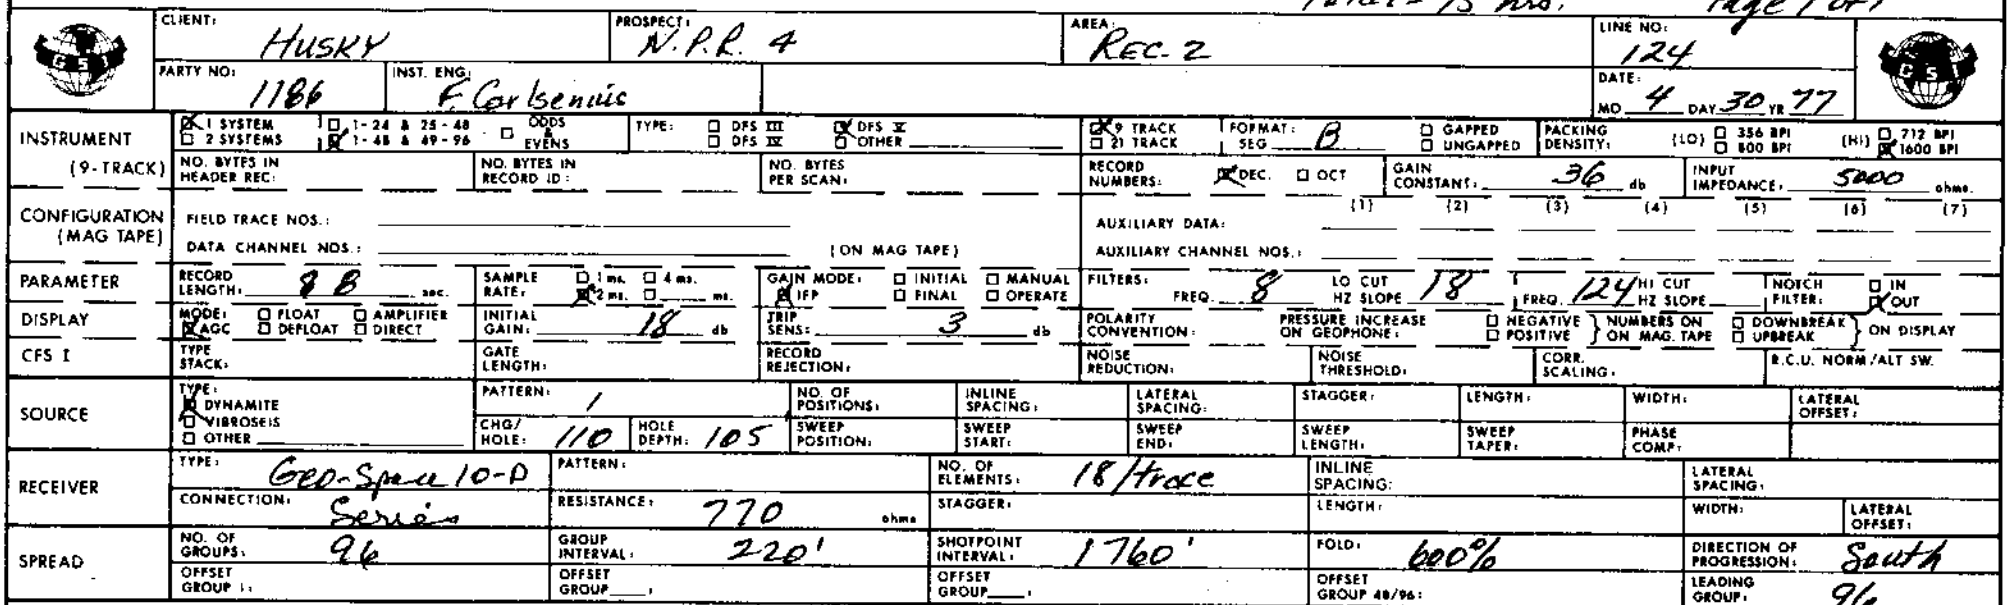 Total - 15 hrs. Page 1 of 1
CLIENT: HUSKY PROSPECT: N.P.R. 4 AREA: REC. 2 LINE NO: 124
GSI GSI
PARTY NO: 1186 INST. ENG: DATE: MO 4 DAY 30 YR 77
INSTRUMENT 1 SYSTEM 1-24 & 25-48 ODDS & EVENS TYPE: DFS III DFS V 9 TRACK FORMAT: B GAPPED PACKING (LO) 356 BPI (HI) 712 BPI
2 SYSTEMS 1-48 & 49-96 DFS IV OTHER 21 TRACK SEG UNGAPPED DENSITY: 800 BPI 1600 BPI
(9-TRACK) NO. BYTES IN HEADER REC: NO. BYTES IN RECORD ID: NO. BYTES PER SCAN: RECORD NUMBERS: DEC. OCT GAIN CONSTANT: 36 db INPUT IMPEDANCE: 5000 ohms.
CONFIGURATION (MAG TAPE) FIELD TRACE NOS.: AUXILIARY DATA: (1) (2) (3) (4) (5) (6) (7)
DATA CHANNEL NOS.: (ON MAG TAPE) AUXILIARY CHANNEL NOS.:
PARAMETER RECORD LENGTH: 8 sec. SAMPLE RATE: 1 ms. 4 ms. 2 ms. ms. GAIN MODE: INITIAL MANUAL IFP FINAL OPERATE FILTERS: FREQ. 8 LO CUT HZ SLOPE 18 FREQ. 124 HI CUT HZ SLOPE NOTCH FILTER: IN OUT
DISPLAY MODE: FLOAT AMPLIFIER AGC DEFLOAT DIRECT INITIAL GAIN: 18 db TRIP SENS: 3 db POLARITY CONVENTION: PRESSURE INCREASE ON GEOPHONE: NEGATIVE POSITIVE } NUMBERS ON MAG. TAPE DOWNBREAK UPBREAK } ON DISPLAY
CFS I TYPE STACK: GATE LENGTH: RECORD REJECTION: NOISE REDUCTION: NOISE THRESHOLD: CORR. SCALING: R.C.U. NORM/ALT SW.
SOURCE TYPE: DYNAMITE VIBROSEIS OTHER PATTERN: 1 NO. OF POSITIONS: INLINE SPACING: LATERAL SPACING: STAGGER: LENGTH: WIDTH: LATERAL OFFSET:
CHG/HOLE: 110 HOLE DEPTH: 105 SWEEP POSITION: SWEEP START: SWEEP END: SWEEP LENGTH: SWEEP TAPER: PHASE COMP:
RECEIVER TYPE: Geo-Space 10-D PATTERN: NO. OF ELEMENTS: 18/trace INLINE SPACING: LATERAL SPACING:
CONNECTION: Series RESISTANCE: 770 ohms STAGGER: LENGTH: WIDTH: LATERAL OFFSET:
SPREAD NO. OF GROUPS: 96 GROUP INTERVAL: 220' SHOTPOINT INTERVAL: 1760' FOLD: 600% DIRECTION OF PROGRESSION: South
OFFSET GROUP 1: OFFSET GROUP : OFFSET GROUP : OFFSET GROUP 48/96: LEADING GROUP: 96